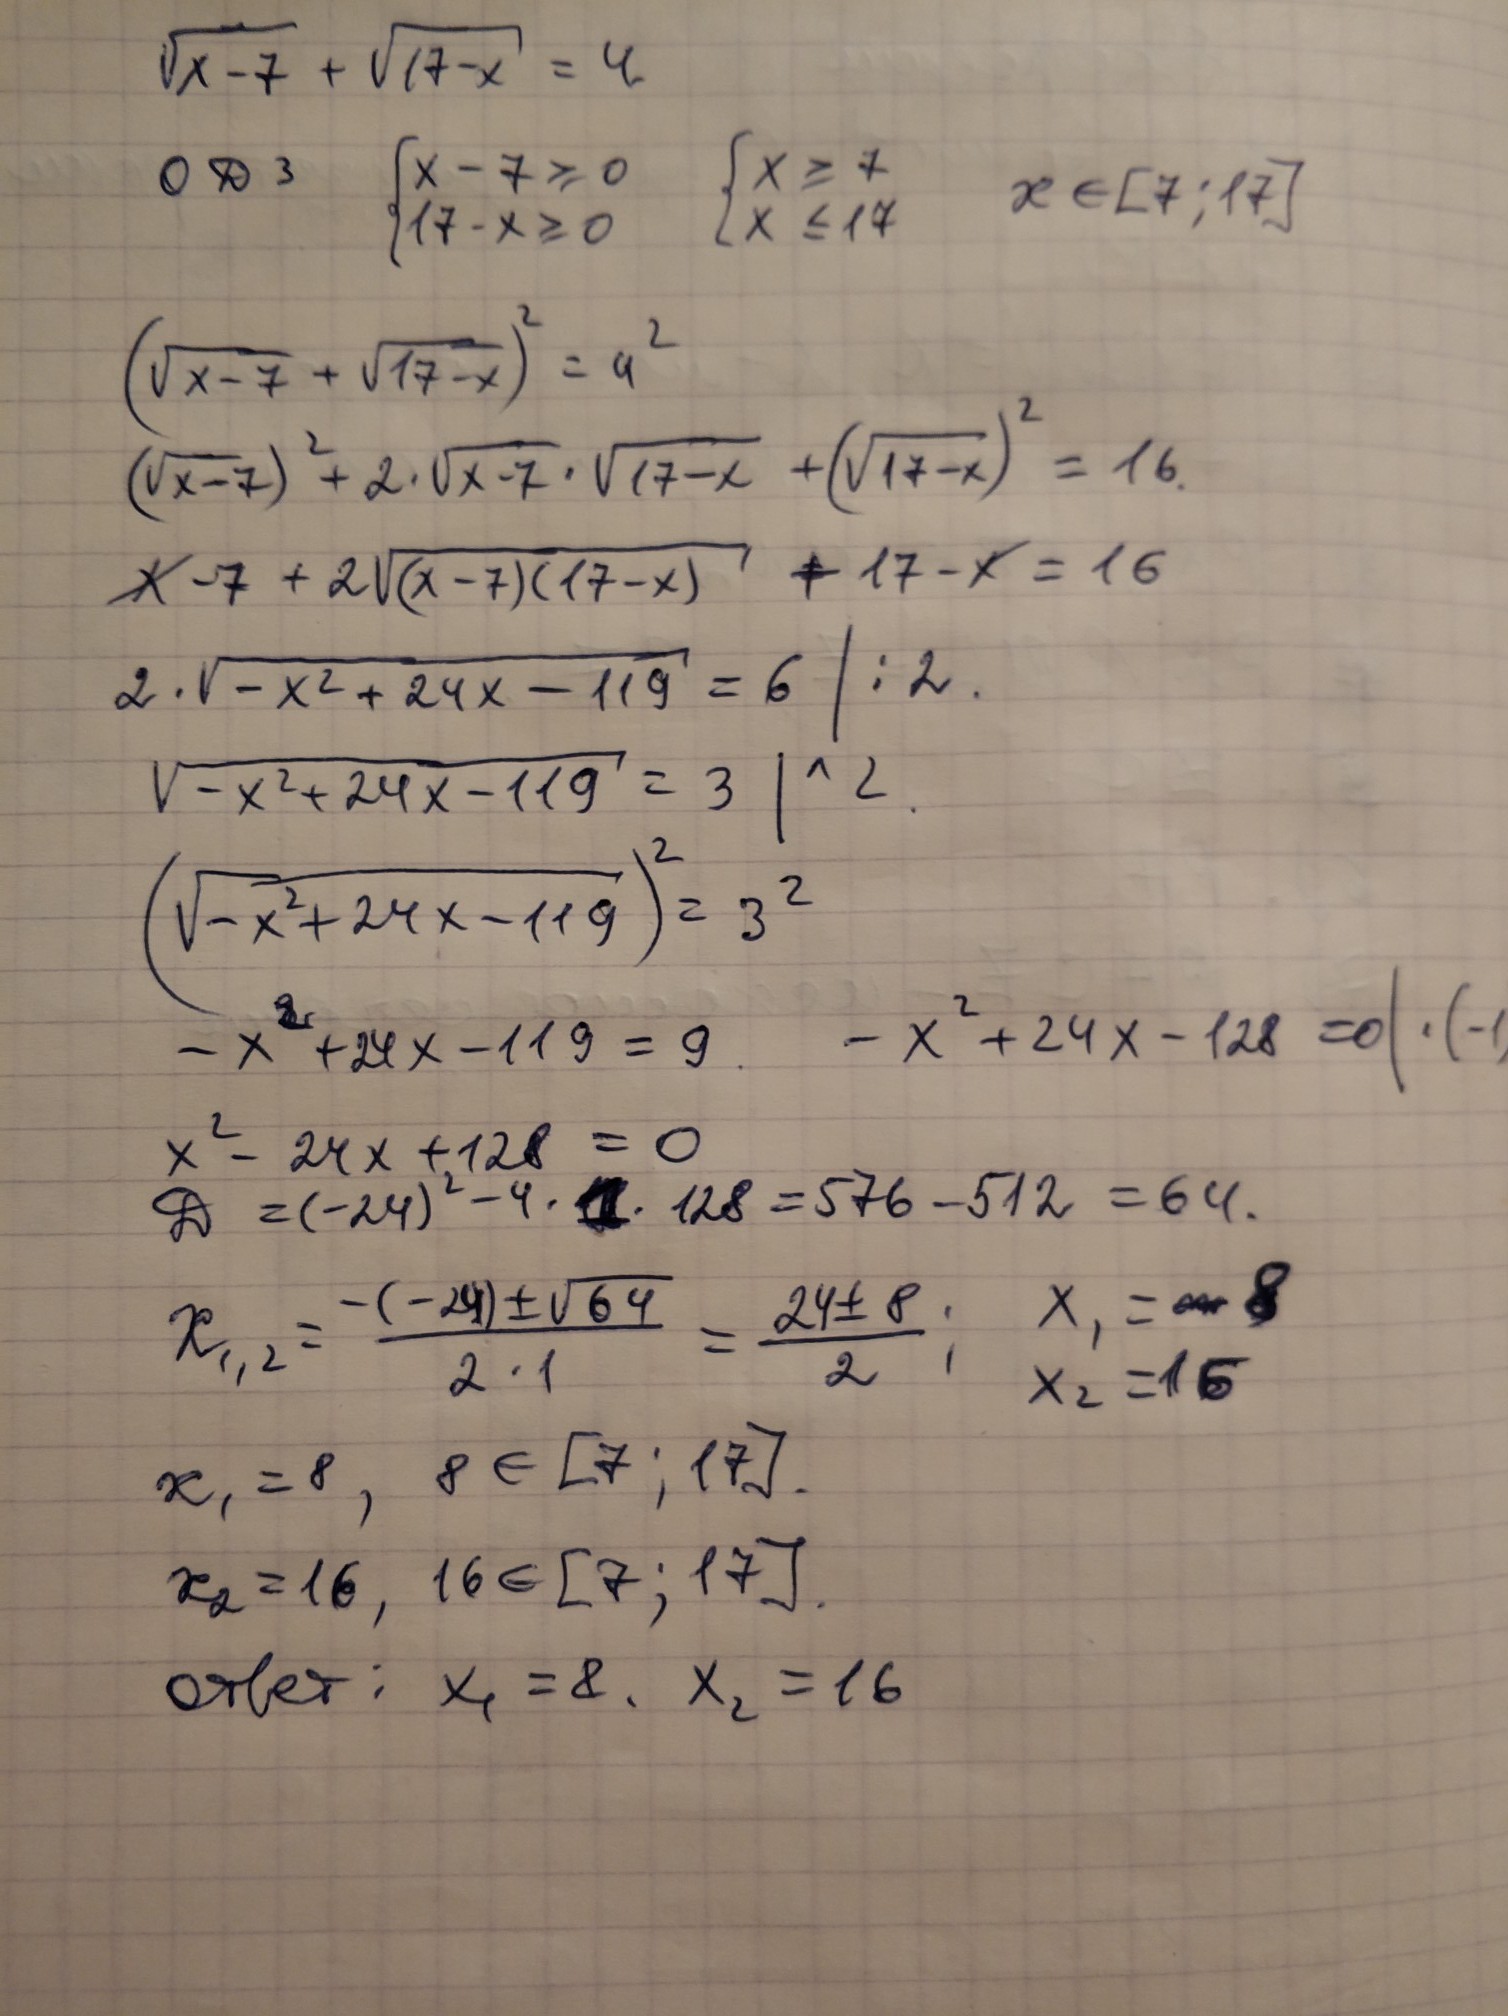 √(x-7) + √(17-x) = 4
ОДЗ {x-7≥0 {x≥7 x∈[7;17]
{17-x≥0 {x≤17
(√(x-7) + √(17-x))² = 4²
(√(x-7))² + 2·√(x-7)·√(17-x) + (√(17-x))² = 16.
x-7 + 2√((x-7)(17-x)) + 17-x = 16
2·√(-x²+24x-119) = 6 |:2.
√(-x²+24x-119) = 3 |^2.
(√(-x²+24x-119))² = 3²
-x²+24x-119 = 9. -x²+24x-128 =0|·(-1)
x²-24x+128 = 0
D =(-24)²-4·1·128=576-512=64.
x₁,₂ = (-(-24)±√64)/(2·1) = (24±8)/2; x₁ = 8
x₂ =16
x₁=8, 8∈[7;17].
x₂=16, 16∈[7;17].
ответ: x₁=8. x₂=16